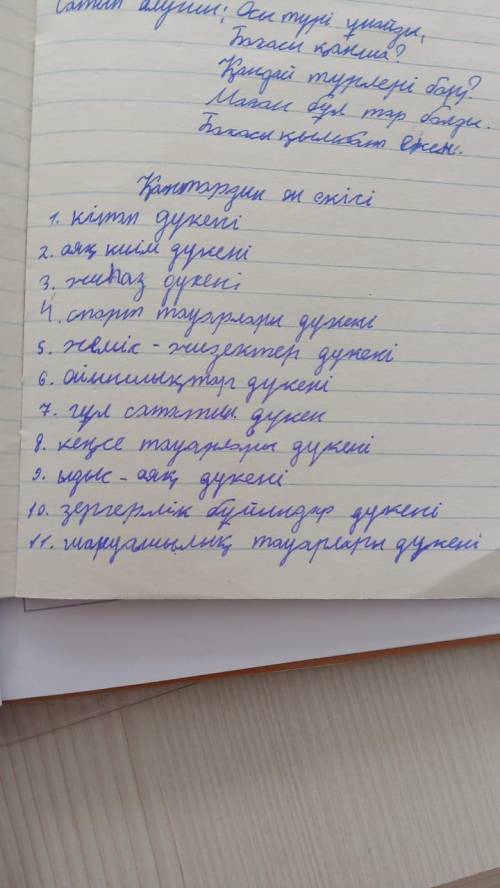 Сатып алушы: Осы түрі ұнайды,
Бағасы қанша?
Қандай түрлері бар?
Маған бұл тар болды.
Бағасы қымбат екен.
Қаңтардың он екісі
1. кітап дүкені
2. аяқ киім дүкені
3. жиһаз дүкені
4. спорт тауарлары дүкені
5. жеміс - жидектер дүкені
6. ойыншықтар дүкені
7. гүл сататын дүкен
8. кеңсе тауарлары дүкені
9. ыдыс - аяқ дүкені
10. зергерлік бұйымдар дүкені
11. шаруашылық тауарлары дүкені